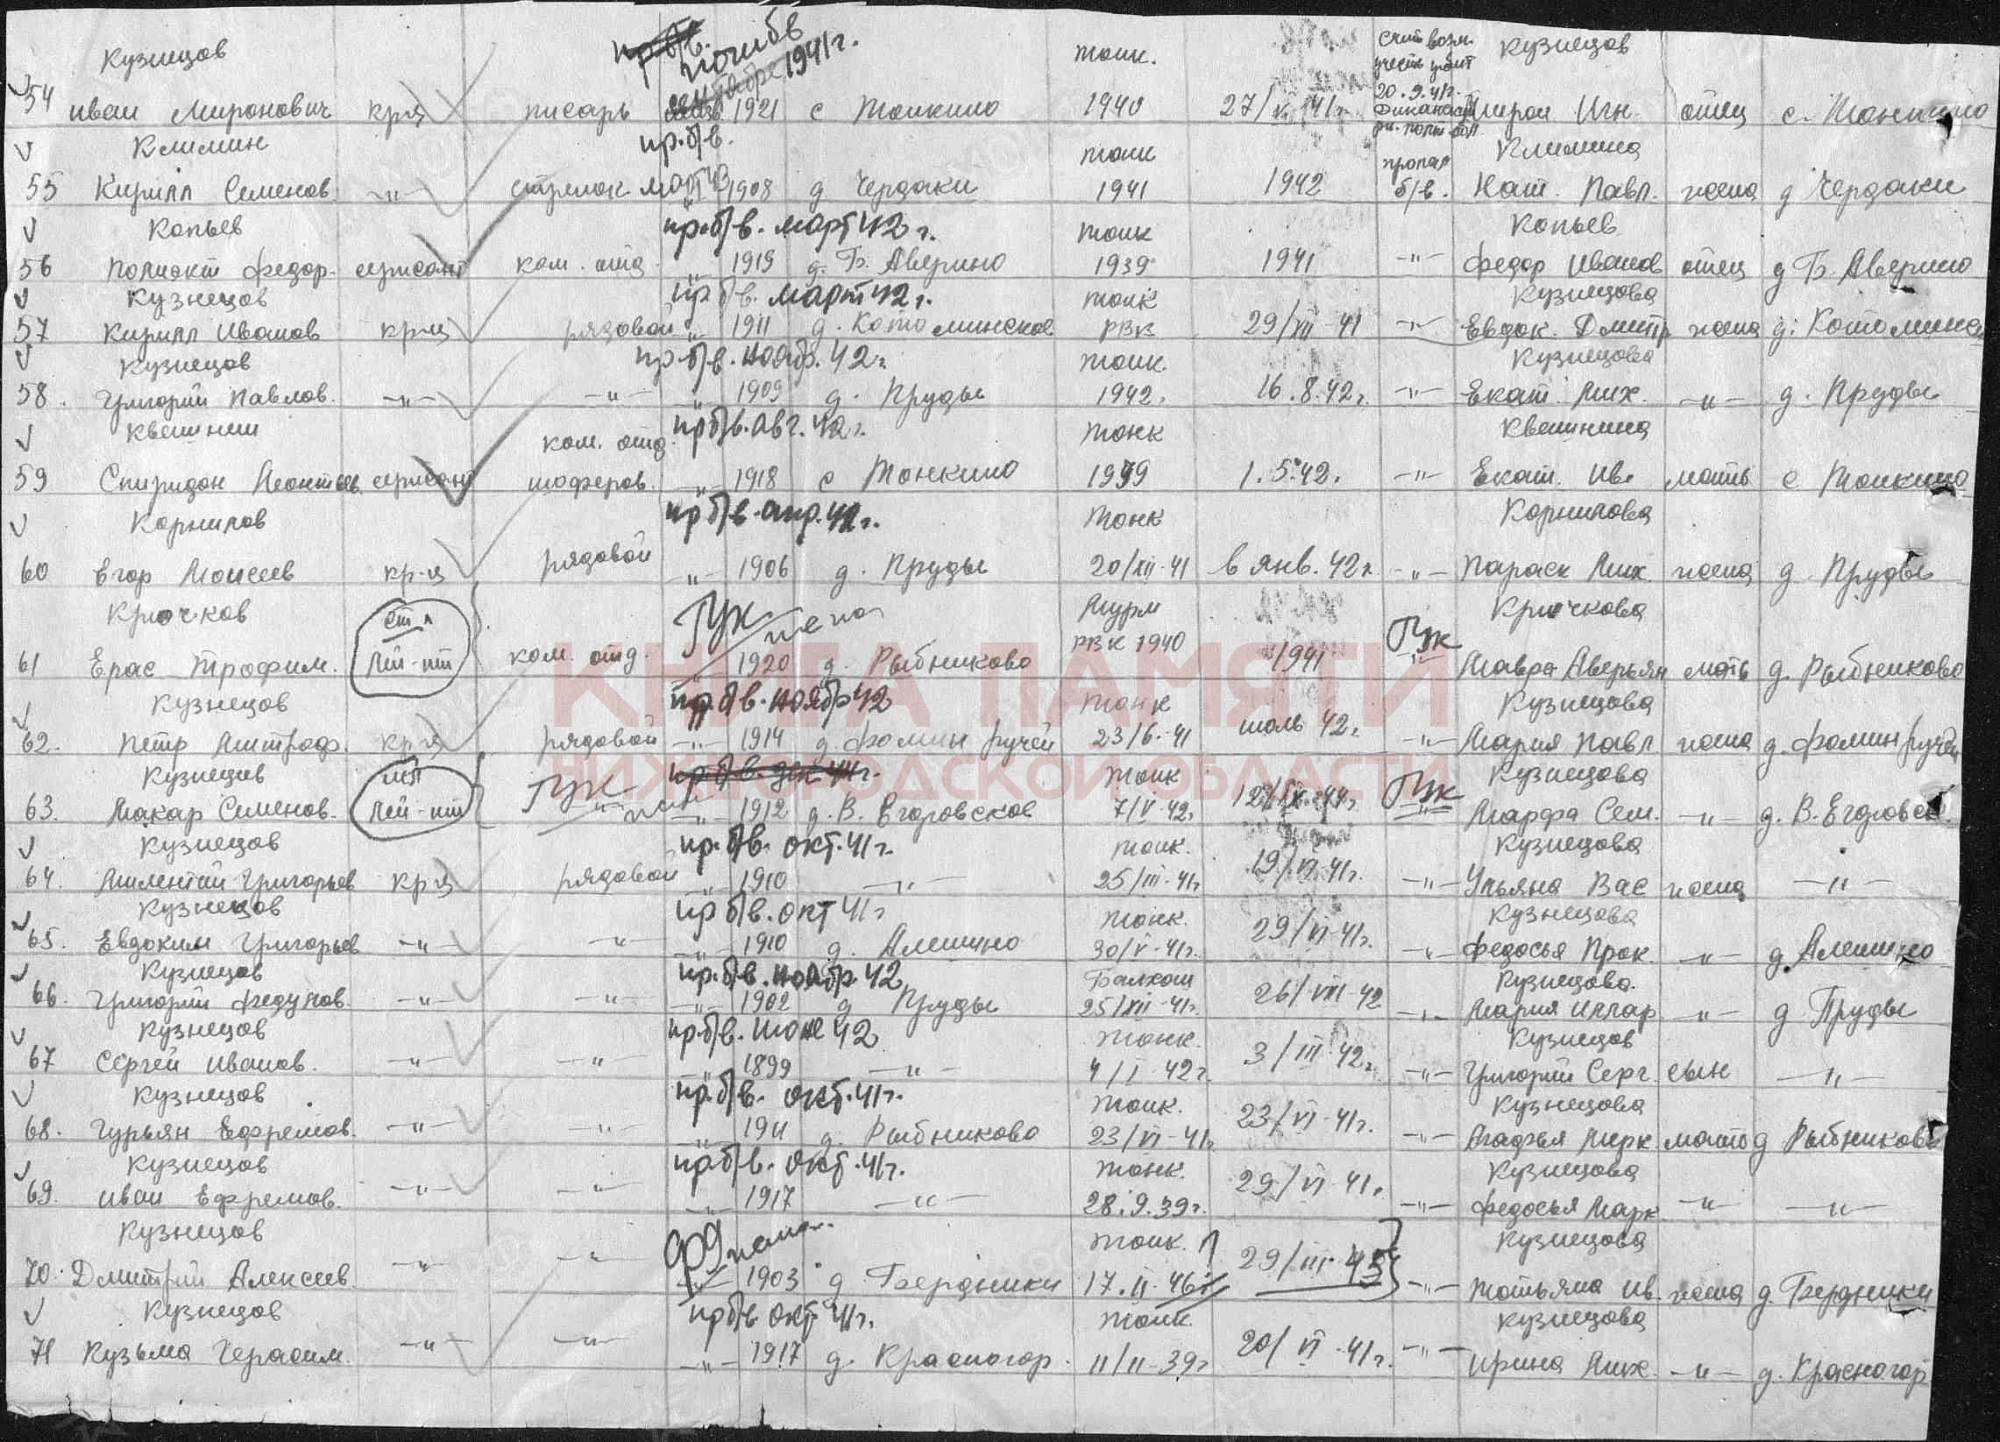 Кузнецов пр. б/в. погиб в сентябре 1941 г. тонк. Кузнецов
54 Иван Миронович кр-ц писарь 1921 с Тонкино 1940 27/ 41г. 20.9.41г. Мирон Игн. отец с. Тонкино
Климин пр. б/в. тонк пропал Климина
55 Кирилл Семенов. -"- стрелок март 43 1908 д Чердаки 1941 1942 б/в. Нат. Павл. жена д Чердаки
Копьев пр. б/в. март 42 г. тонк Копьев
56 Полиект Федор. сержант ком. отд -"- 1919 д. Б. Аверино 1939 1941 -"- Федор Иванов отец д Б. Аверино
Кузнецов пр б/в. март 42 г. тонк Кузнецова
57 Кирилл Иванов кр-ц рядовой -"- 1911 д. Котоминское РВК 29/XII-41 -"- Евдок. Дмитр жена д.
Кузнецов пр. б/в. ноябр. 42 г. тонк. Кузнецова
58. Григорий Павлов. -"- -"- -"- 1909 д. Пруды 1942. 16.8.42г. -"- Екат. Мих. -"- д. Пруды
Квашнин ком. отд. пр б/в. авг. 42 г. тонк Квашнина
59 Спиридон Леонтьев. сержант шоферов. -"- 1918 с Тонкино 1939 1.5.42. -"- Екат. Ив. мать с Тонкино
Корнилов пр б/в. апр. 42 г. тонк Корнилова
60 Егор Моисеев кр-ц рядовой -"- 1906 д. Пруды 20/XII-41 в янв. 42г. -"- Параск Мих жена д Пруды
Крючков ст. л ГУК Мурм ГУК Крючкова
61 Ерас Трофим. лей-нт ком. отд. 1920 д. Рыбниково РВК 1940 1941 -"- Мавра Аверьян мать д. Рыбниково
Кузнецов пр б/в. ноябр 42 тонк Кузнецова
62. Петр Митроф. кр-ц рядовой -"- 1914 д. Фомин ручей 23/6-41 июль 42г. -"- Мария Павл жена д. Фомин ручей
Кузнецов мл ГУК пр. б/в. дек 44г. тонк ГУК Кузнецова
63. Макар Семенов. лей-нт -"- 1912 д. В. Егоровское 7/V-42г. -"- Марфа Сем. -"- д. В. Егоровск.
Кузнецов пр. б/в. окт. 41 г. тонк. Кузнецова
64. Милентий Григорьев кр-ц рядовой -"- 1910 -"- 25/III-41г 19/VI-41г. -"- Ульяна Вас жена -"-
Кузнецов пр б/в. окт 41 г тонк. Кузнецова
65. Евдоким Григорьев -"- -"- -"- 1910 д. Алешино 30/V-41г. 29/VI-41г. -"- Федосья Прок. -"- д. Алешино
Кузнецов пр. б/в. ноябр 42 Балхаш Кузнецова.
66. Григорий Федулов. -"- -"- -"- 1902 д Пруды 25/XII-41г. 26/VIII-42 -"- Мария Иллар -"- д Пруды
Кузнецов пр. б/в. июне 42 тонк. Кузнецов
67 Сергей Иванов. -"- -"- -"- 1899 -"- 4/I-42г. 3/III-42г. -"- Григорий Серг. сын -"-
Кузнецов пр. б/в. окт. 41г. тонк. Кузнецова
68. Гурьян Ефремов. -"- -"- -"- 1911 д. Рыбниково 23/VI-41г. 23/VI-41г. -"- Агафья Мирк мать д Рыбниково
Кузнецов пр б/в. окт. 41г. тонк. Кузнецова
69. Иван Ефремов. -"- -"- -"- 1917 -"- 28.9.39г. 29/VI-41г. -"- Федосья Марк -"- -"-
Кузнецов тонк. Кузнецова
70. Дмитрий Алексеев. -"- -"- 1903 д. Бердники 17.II-46г 29/III-45 -"- Татьяна Ив. жена д. Бердники
Кузнецов пр б/в окт 41 г. тонк. Кузнецова
71 Кузьма Герасим. -"- -"- -"- 1917 д. Красногор. 11/II-39г 20/VI-41г. -"- Ирина Мих. -"- д. Красногор
КНИГА ПАМЯТИ
НИЖЕГОРОДСКОЙ ОБЛАСТИ